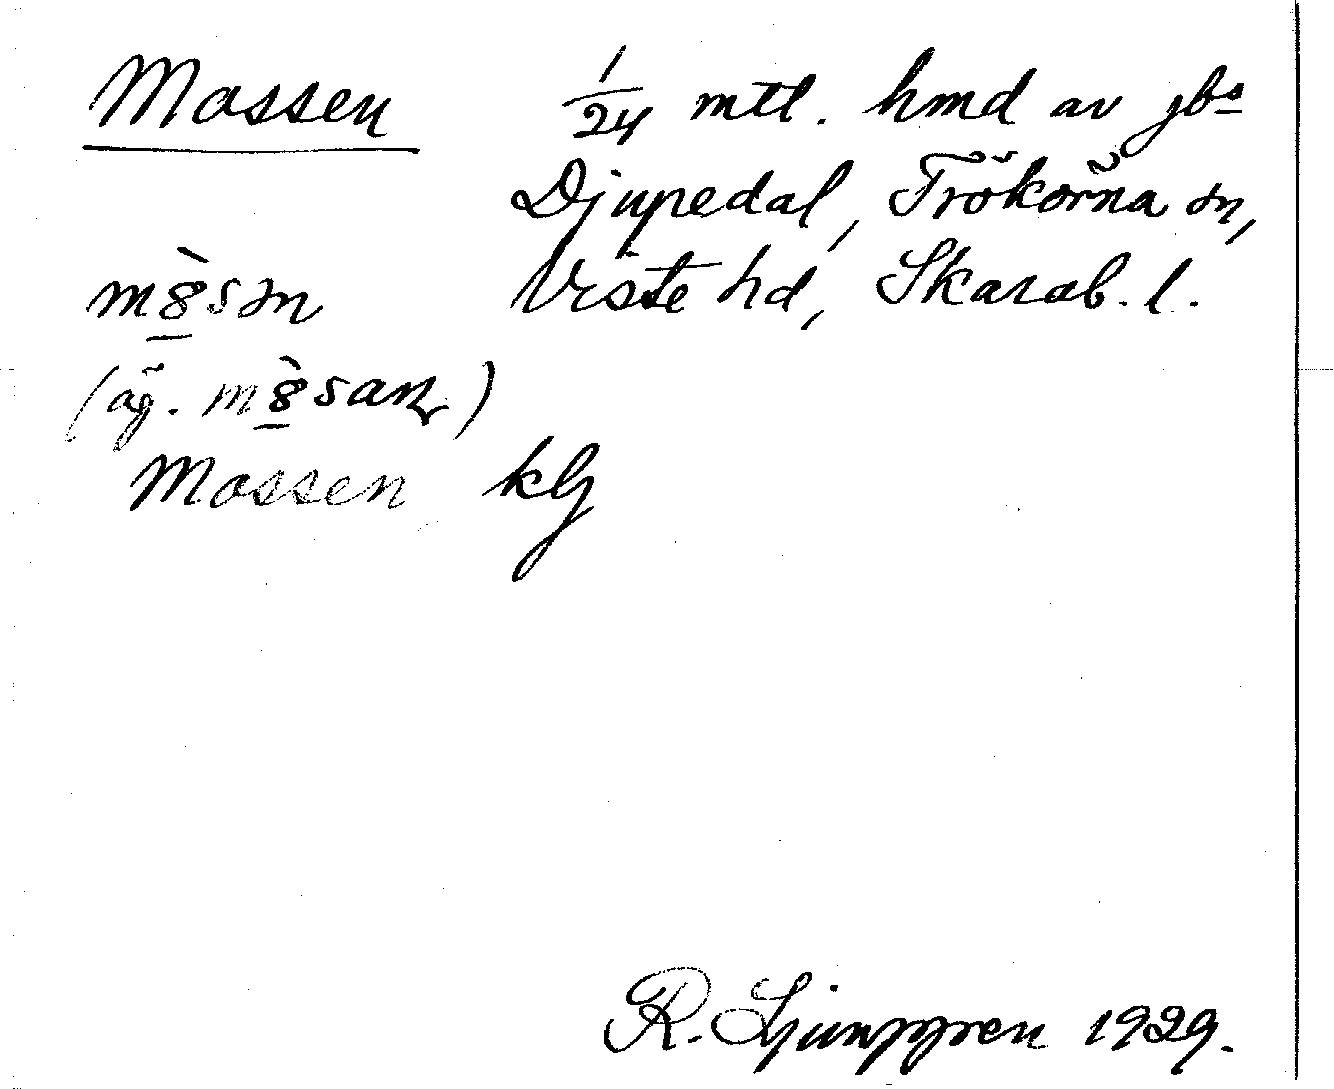 Mossen 1/24 mtl. hmd av jbs
Djupedal, Trökörna sn,
Viste hd, Skarab. l.
m8̀sən
(äg. m8̀san)
Mossen kbg
R. Ljunggren 1929.